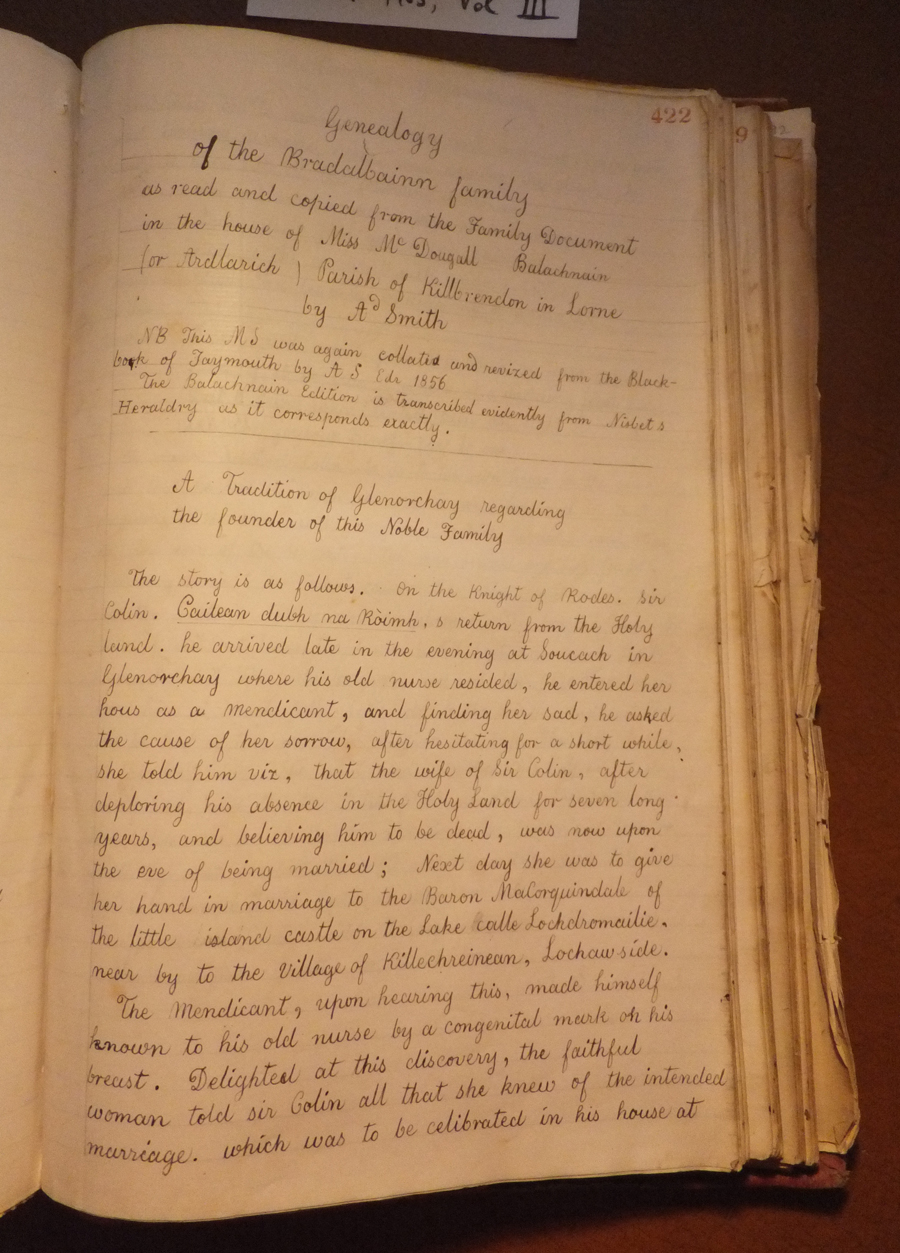 Vol III
422
Genealogy
of the Bradalbainn family
as read and copied from the Family Document
in the house of Miss Mc Dougall Balachnain
(or Ardlarich ) Parish of Killbrendon in Lorne
by Ad Smith
NB This MS was again collated and revized from the Black-
book of Taymouth by A S Edr 1856
The Balachnain Edition is transcribed evidently from Nisbets
Heraldry as it corresponds exactly.
A Tradition of Glenorchay regarding
the founder of this Noble Family
The story is as follows. On the Knight of Rodes. Sir
Colin. Cailean dubh na Ròimh, s return from the Holy
land. he arrived late in the evening at Soucach in
Glenorchay where his old nurse resided, he entered her
hous as a mendicant, and finding her sad, he asked
the cause of her sorrow, after hesitating for a short while,
she told him viz, that the wife of Sir Colin, after
deploring his absence in the Holy Land for seven long
years, and believing him to be dead, was now upon
the eve of being married; Next day she was to give
her hand in marriage to the Baron MaCorquindale of
the little island castle on the Lake calle Lochdromailie,
near by to the Village of Killechreinean, Lochawside.
The Mendicant, upon hearing this, made himself
known to his old nurse by a congenital mark on his
breast. Delighted at this discovery, the faithful
woman told sir Colin all that she knew of the intended
marriage. which was to be celibrated in his house at